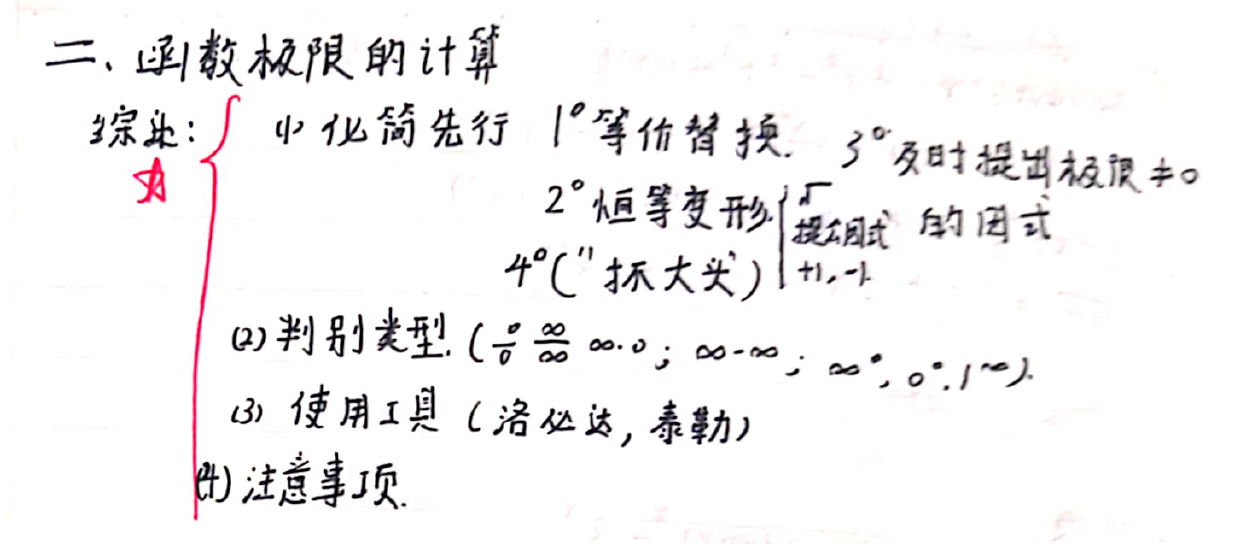 二、函数极限的计算
综述: (1) 化简先行 1° 等价替换. 3° 及时提出极限≠0
2° 恒等变形 { √ 的因式
提公因式
4° ("抓大头") +1, -1
(2) 判别类型. (0/0 ∞/∞ ∞·0; ∞-∞; ∞⁰, 0⁰, 1^∞).
(3) 使用工具 (洛必达, 泰勒)
(4) 注意事项.